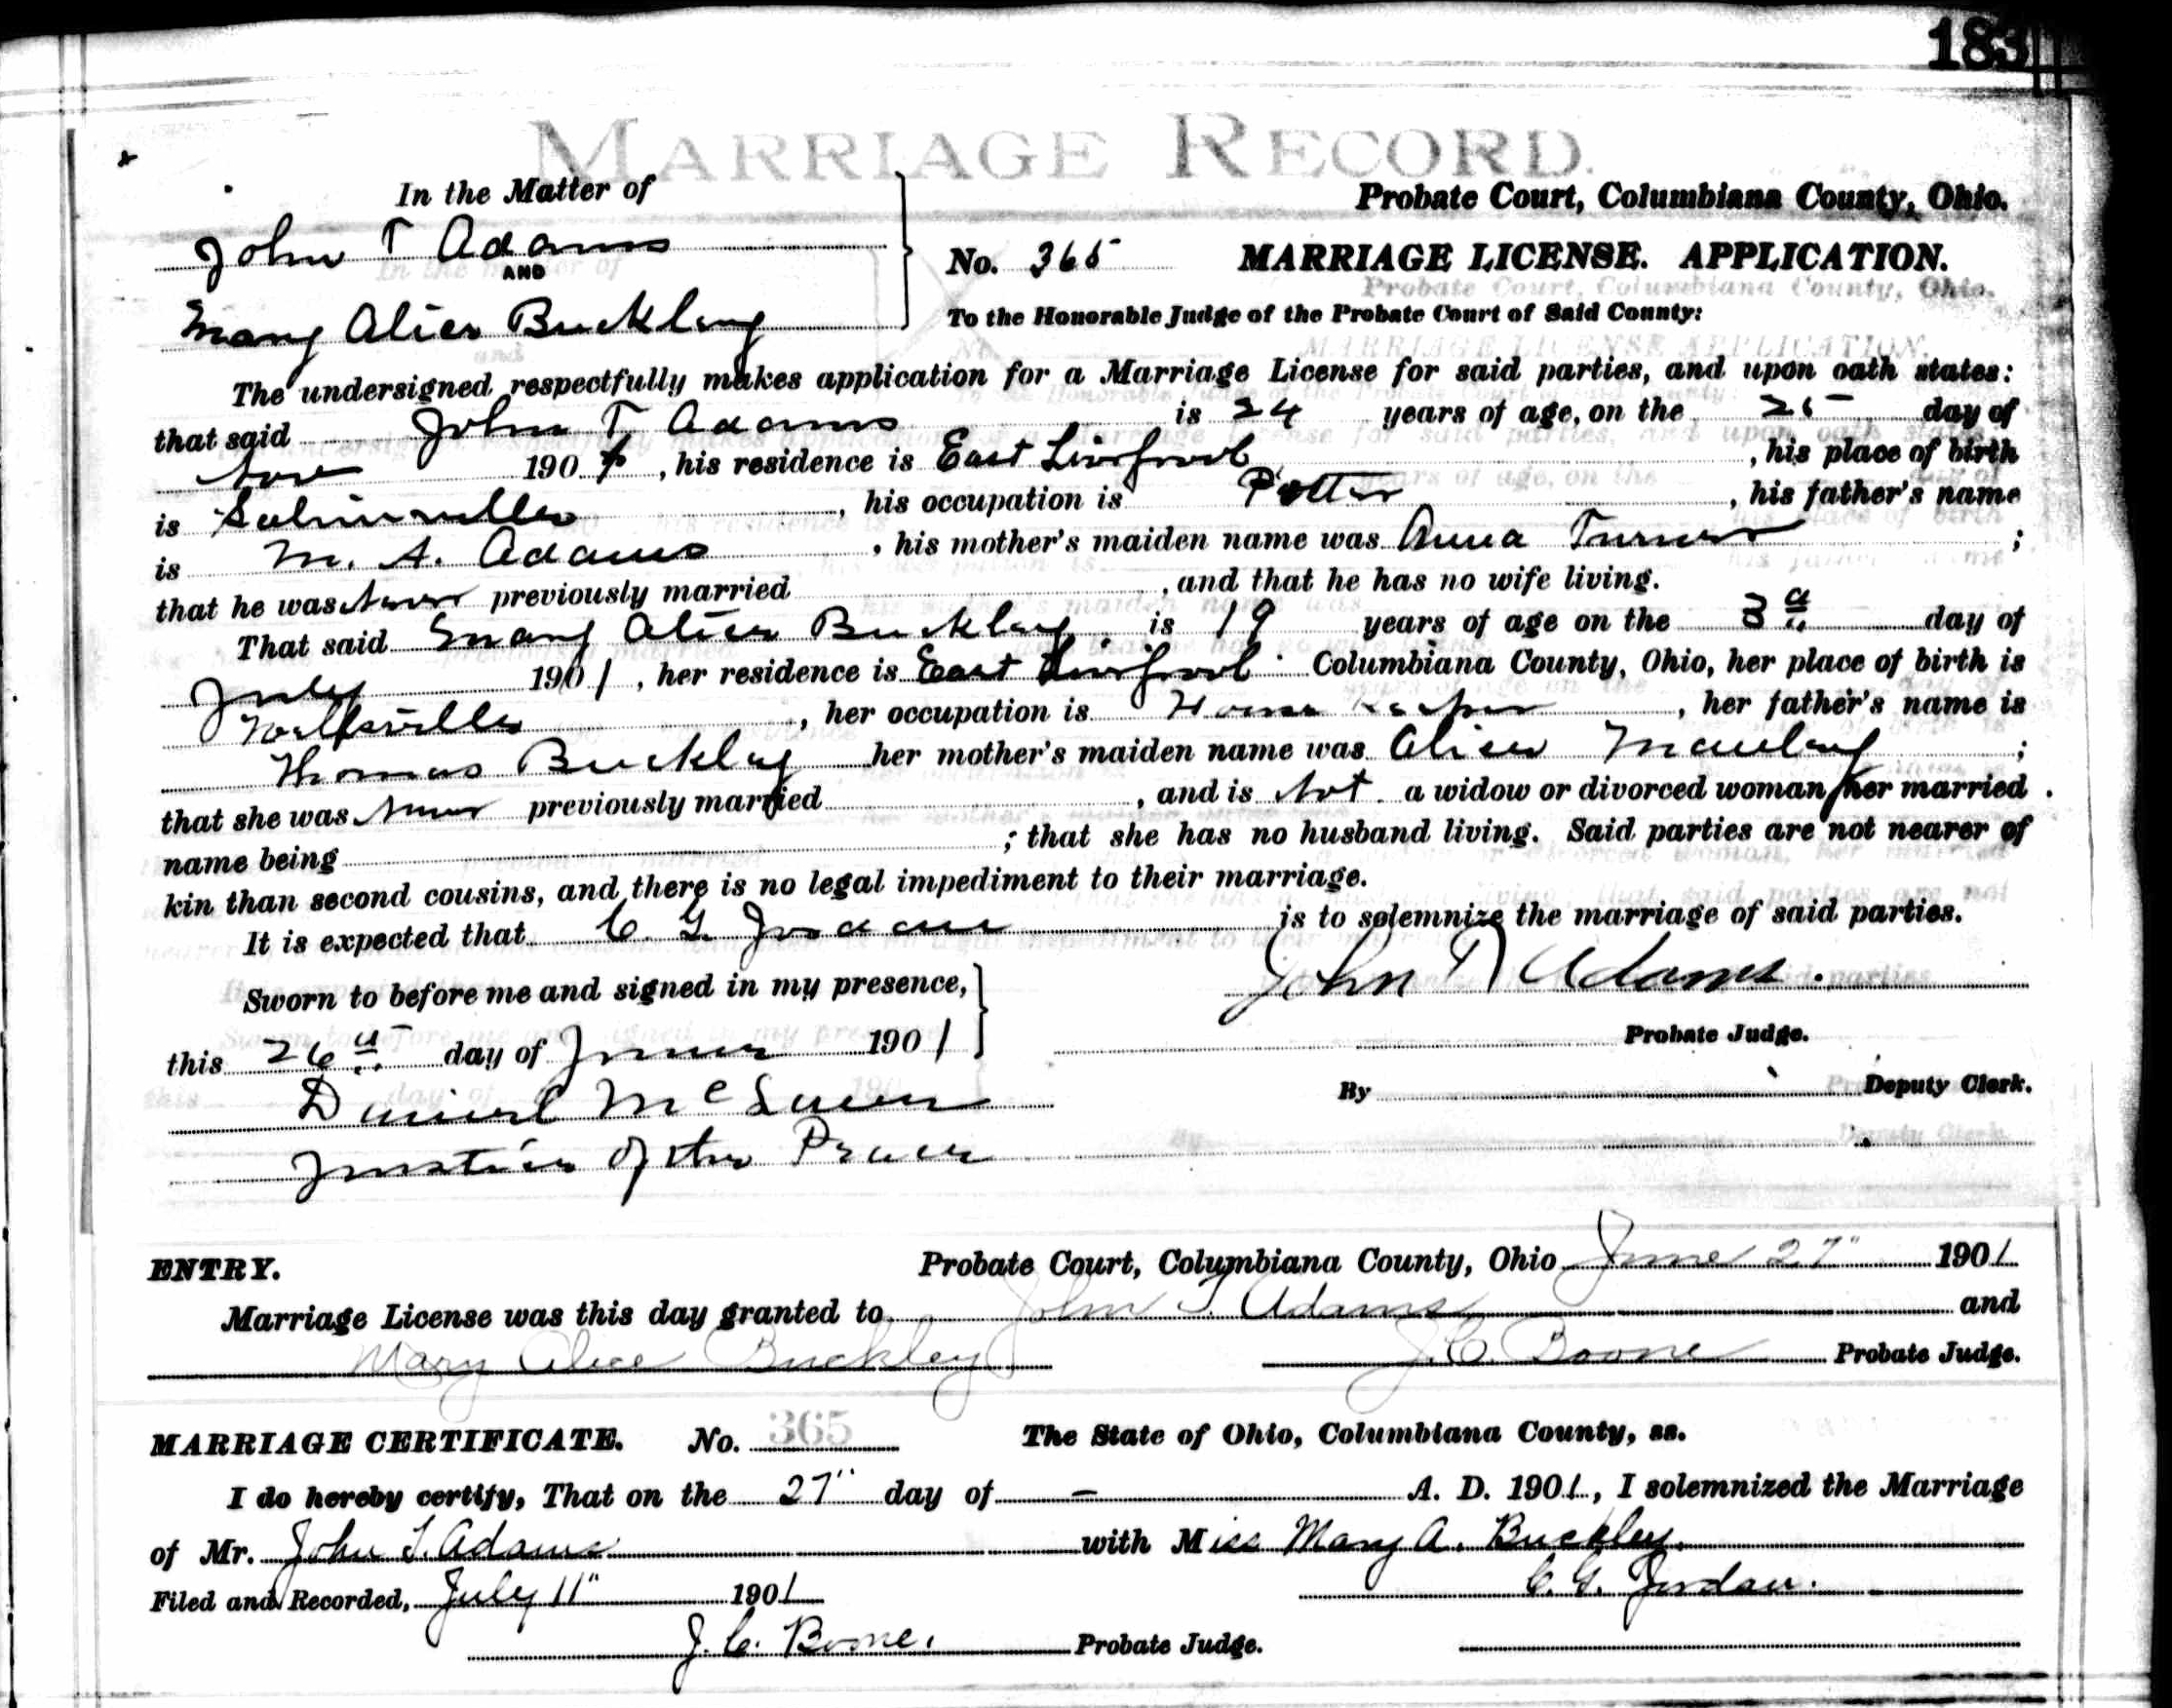 183
MARRIAGE RECORD.
In the Matter of
John T Adams
AND
Mary Alice Buckley
Probate Court, Columbiana County, Ohio.
No. 365 MARRIAGE LICENSE. APPLICATION.
To the Honorable Judge of the Probate Court of Said County:
The undersigned respectfully makes application for a Marriage License for said parties, and upon oath states:
that said John T Adams is 24 years of age, on the 25 day of
Nov 190 , his residence is East Liverpool , his place of birth
is Salineville , his occupation is Potter , his father's name
is M. A. Adams , his mother's maiden name was Anna Turner ;
that he was Never previously married , and that he has no wife living.
That said Mary Alice Buckley is 19 years of age on the 3d day of
July 1901 , her residence is East Liverpool Columbiana County, Ohio, her place of birth is
Wellsville , her occupation is House Keeper , her father's name is
Thomas Buckley her mother's maiden name was Alice Manley ;
that she was Never previously married , and is Not a widow or divorced woman her married .
name being ; that she has no husband living. Said parties are not nearer of
kin than second cousins, and there is no legal impediment to their marriage.
It is expected that C. G. Jordan is to solemnize the marriage of said parties.
Sworn to before me and signed in my presence,
John T Adams.
this 26th day of June 1901
Probate Judge.
Daniel McLane
By Deputy Clerk.
Justice of the Peace
ENTRY. Probate Court, Columbiana County, Ohio June 27" 1901
Marriage License was this day granted to John T. Adams and
Mary Alice Buckley J. C. Boone Probate Judge.
MARRIAGE CERTIFICATE. No. 365 The State of Ohio, Columbiana County, ss.
I do hereby certify, That on the 27" day of — A. D. 1901, I solemnized the Marriage
of Mr. John T. Adams with Miss Mary A. Buckley.
Filed and Recorded, July 11" 1901 C. G. Jordan.
J. C. Boone. Probate Judge.